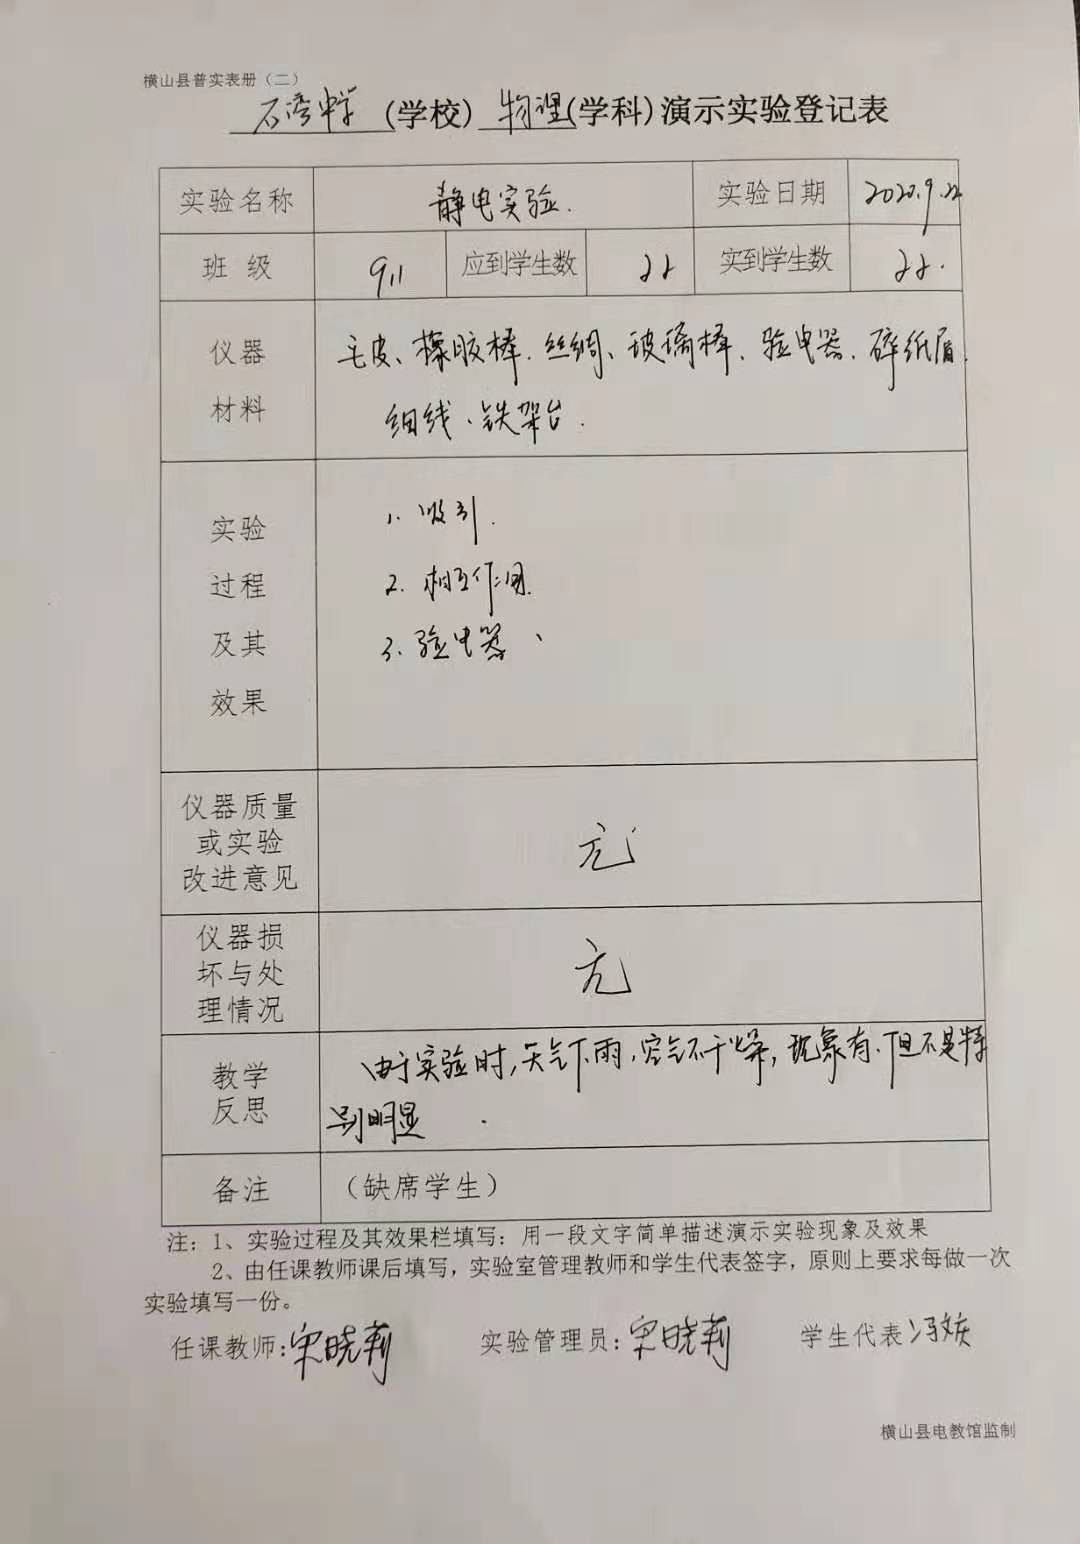 横山县普实表册（二）
石湾中学（学校）物理（学科）演示实验登记表
实验名称 静电实验. 实验日期 2020.9.22
班 级 911 应到学生数 22 实到学生数 22.
仪器 毛皮、橡胶棒.丝绸、玻璃棒、验电器.碎纸屑.
材料 细线、铁架台.
实验 1. 吸引.
过程 2. 相互作用
及其 3. 验电器、
效果
仪器质量
或实验 无
改进意见
仪器损
坏与处 无
理情况
教学 由于实验时,天气下雨,空气不干燥,现象有.但不是特
反思 别明显.
备注 （缺席学生）
注：1、实验过程及其效果栏填写：用一段文字简单描述演示实验现象及效果
2、由任课教师课后填写，实验室管理教师和学生代表签字，原则上要求每做一次
实验填写一份。
任课教师:宋晓莉 实验管理员:宋晓莉 学生代表
横山县电教馆监制